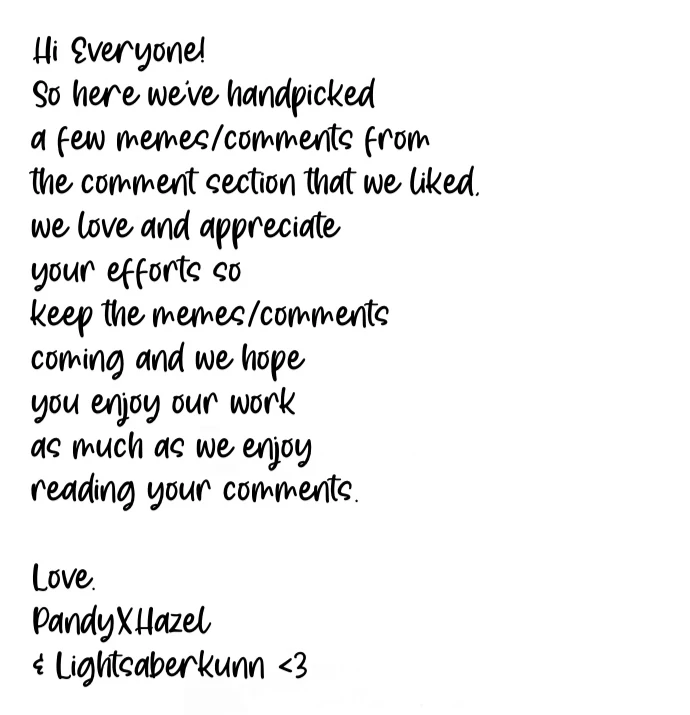 Hi Everyone!
So here we've handpicked
a few memes/comments from
the comment section that we liked.
we love and appreciate
your efforts so
keep the memes/comments
coming and we hope
you enjoy our work
as much as we enjoy
reading your comments.
Love.
PandyXHazel
& Lightsaberkunn <3